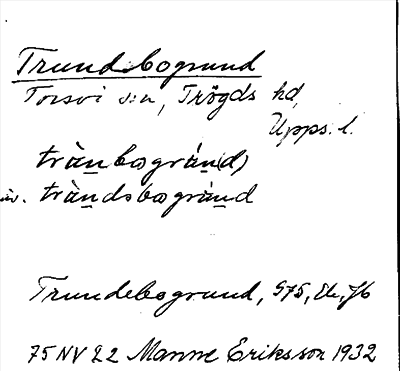 Trundsbogrund
Torsvi s:n, Trögds hd,
Upps. l.
trùn̲bogrún̲(d)
äv. trùn̲dsbogrùn̲d
Trundebogrund, S75, Ek, Jb
75 NV 22 Manne Eriksson 1932